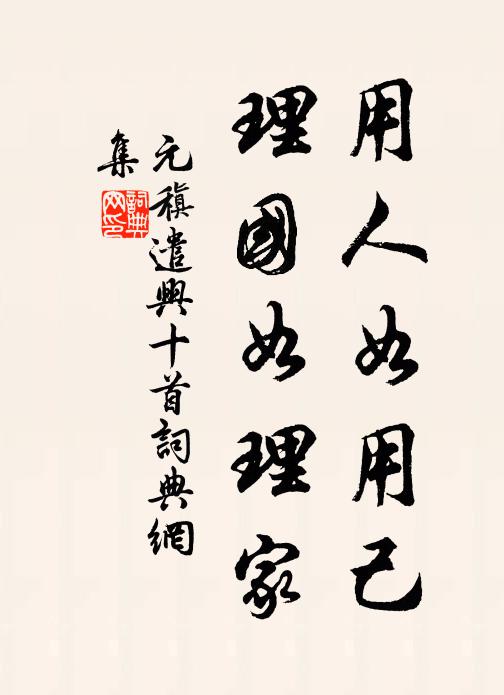 用人如用己
理國如理家
元稹遣興十首詞典網
集
詞典
网印